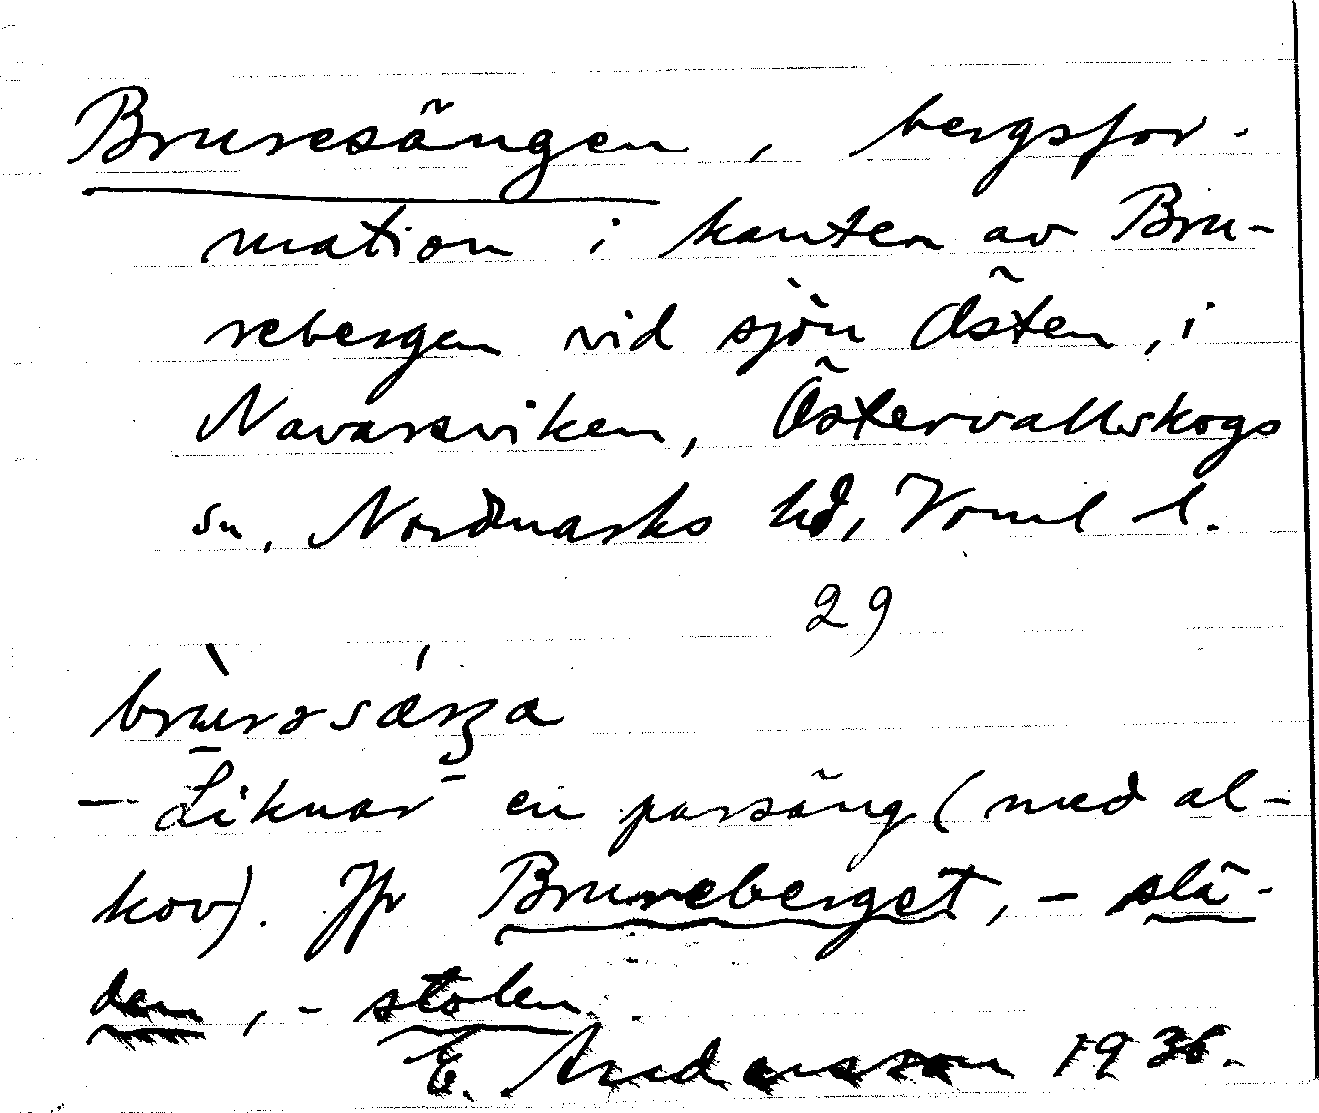 Bruresängen, bergsfor-
mation i kanten av Bru-
rebergen vid sjön Östen, i
Navarsviken, Östervallskogs
sn, Nordmarks hd, Vrml l.
29
brùrəsáŋa
- Liknar en parsäng (med al-
kov). Jfr Brureberget, - slä-
den, - stolen.
E. Andersson 1936.